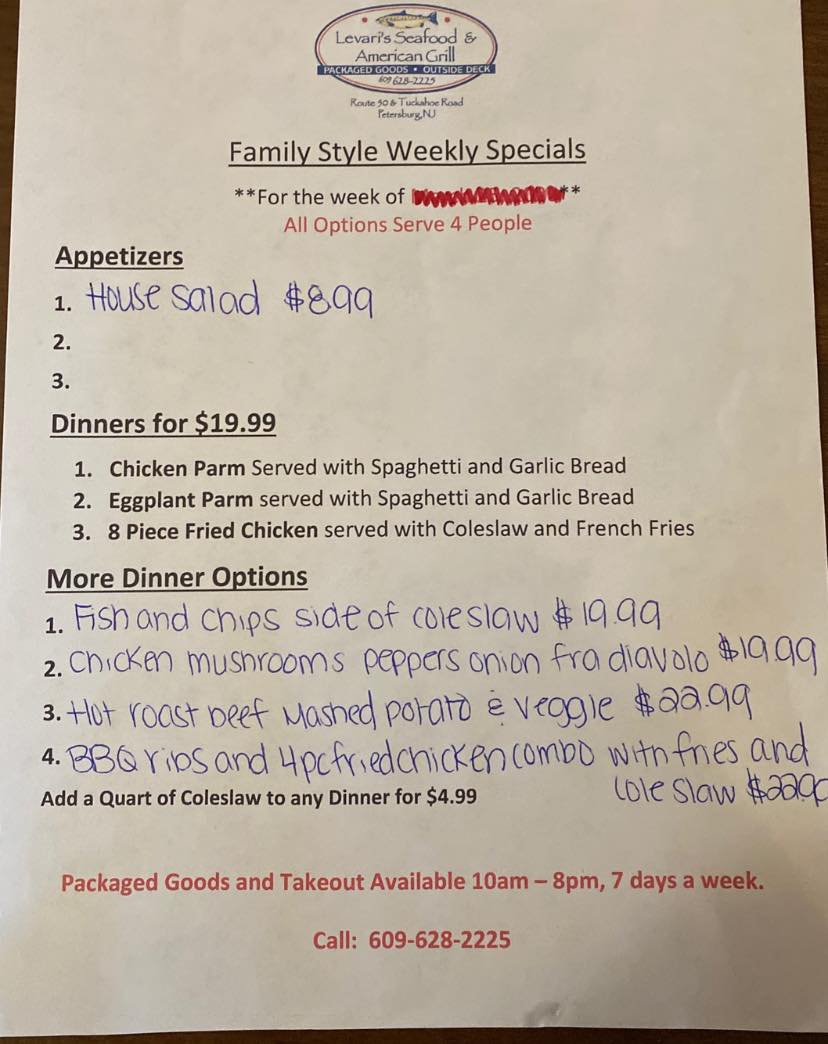 Levari's Seafood &
American Grill
PACKAGED GOODS • OUTSIDE DECK
609 628-2225
Route 50 & Tuckahoe Road
Petersburg, NJ
Family Style Weekly Specials
**For the week of **
All Options Serve 4 People
Appetizers
1. House salad $8.99
2.
3.
Dinners for $19.99
1. Chicken Parm Served with Spaghetti and Garlic Bread
2. Eggplant Parm served with Spaghetti and Garlic Bread
3. 8 Piece Fried Chicken served with Coleslaw and French Fries
More Dinner Options
1. Fish and chips side of coleslaw $19.99
2. Chicken mushrooms peppers onion fra diavolo $19.99
3. Hot roast beef Mashed potato & veggie $22.99
4. BBQ ribs and 4pc fried chicken combo with fries and
cole slaw $22.99
Add a Quart of Coleslaw to any Dinner for $4.99
Packaged Goods and Takeout Available 10am – 8pm, 7 days a week.
Call: 609-628-2225